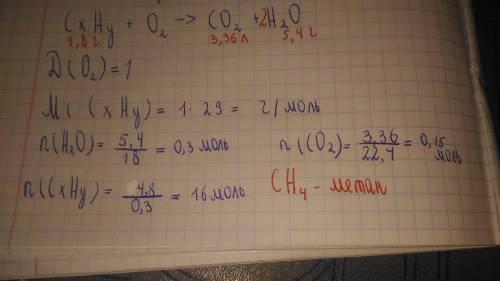 CxHy + O₂ -> CO₂ + 2H₂O
4,8 г 3,36 л 5,4 г
D(O₂) = 1
M(CxHy) = 1 · 29 = г/моль
n(H₂O) = 5,4/18 = 0,3 моль n(CO₂) = 3,36/22,4 = 0,15 моль
n(CxHy) = 4,8/0,3 = 16 моль CH₄ - метан